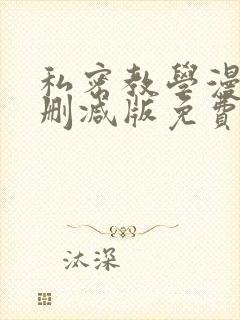 私密教學漫
刪減版免費
汰深